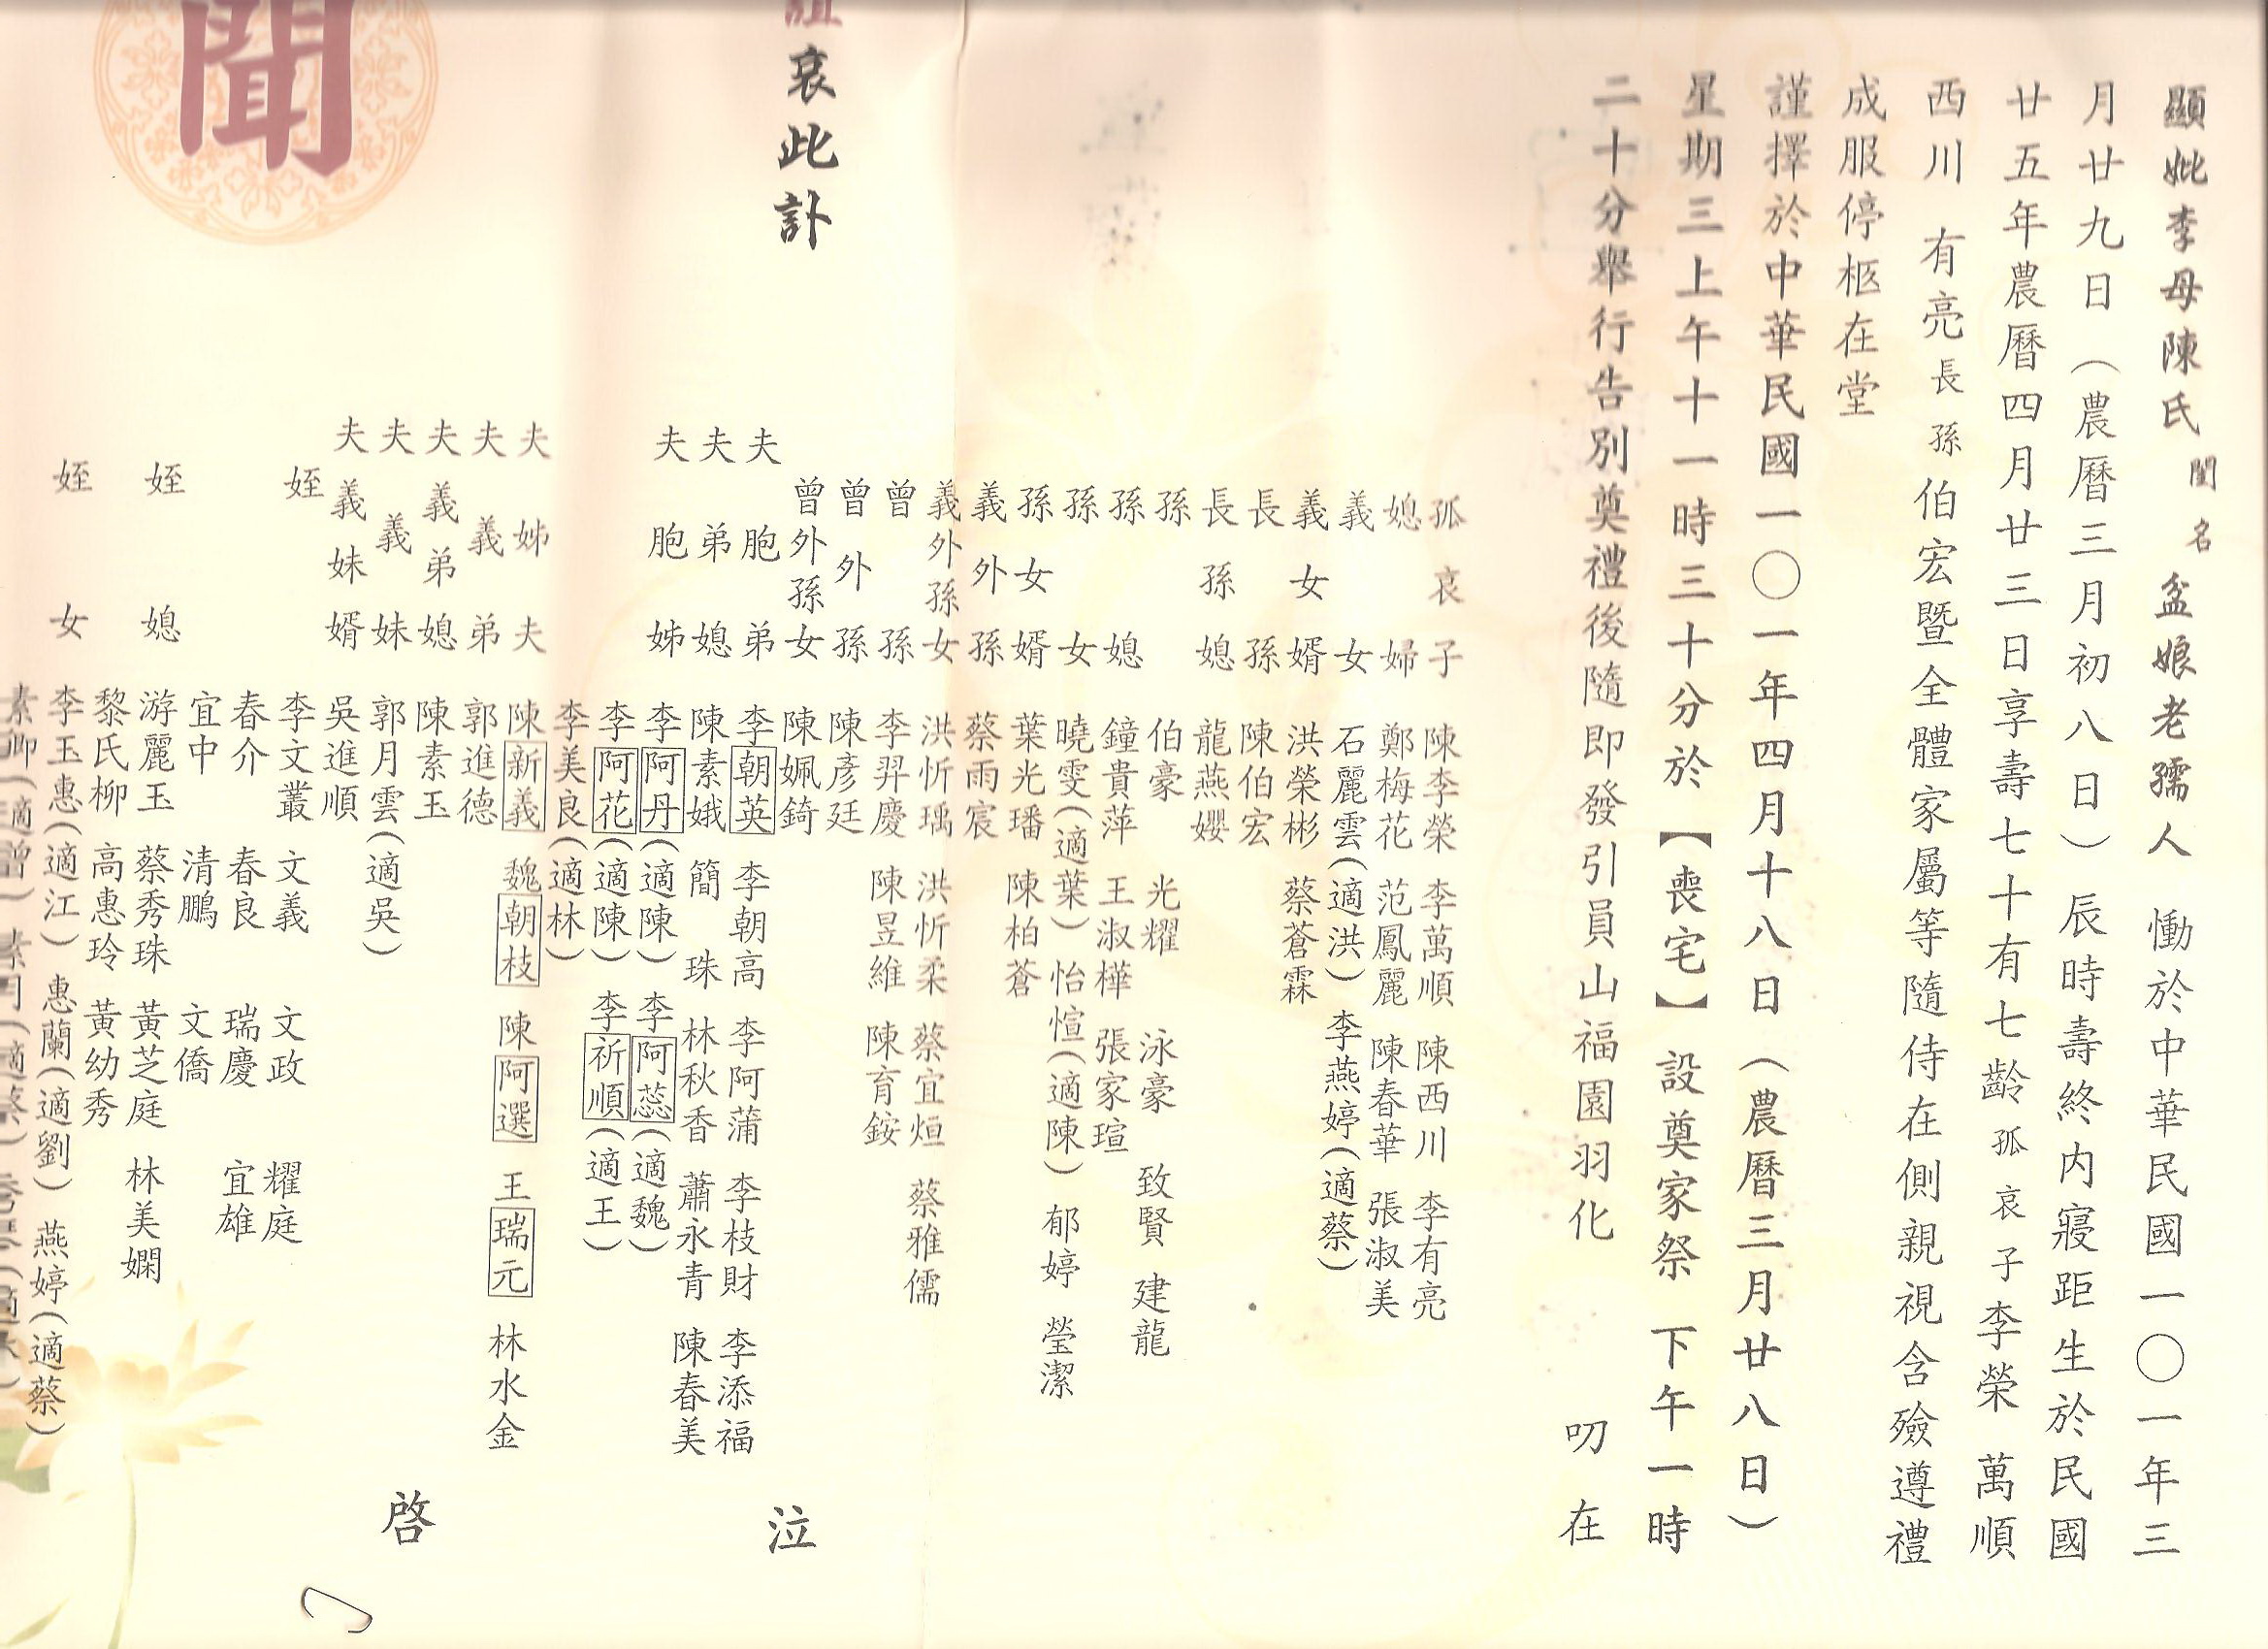 顯妣李母陳氏閨名盆娘老孺人 慟於中華民國一〇一年三
月廿九日（農曆三月初八日）辰時壽終內寢距生於民國
廿五年農曆四月廿三日享壽七十有七齡孤哀子李榮 萬順
西川 有亮長孫伯宏暨全體家屬等隨侍在側親視含殮遵禮
成服停柩在堂
謹擇於中華民國一〇一年四月十八日（農曆三月廿八日）
星期三上午十一時三十分於【喪宅】設奠家祭 下午一時
二十分舉行告別奠禮後隨即發引員山福園羽化 叨在
孤哀子 陳李榮 李萬順 陳西川 李有亮
媳婦 鄭梅花 范鳳麗 陳春華 張淑美
義女 石麗雲(適洪) 李燕婷(適蔡)
義女婿 洪榮彬 蔡蒼霖
長孫 陳伯宏
長孫媳 龍燕嬰
孫 伯豪 光耀 泳豪 致賢 建龍
孫媳 鐘貴萍 王淑樺 張家瑄
孫女 曉雯(適葉) 怡愃(適陳) 郁婷 瑩潔
孫女婿 葉光璠 陳柏蒼
義外孫 蔡雨宸
義外孫女 洪忻瑀 洪忻柔 蔡宜烜 蔡雅儒
曾孫 李羿慶 陳昱維 陳育銨
曾外孫 陳彥廷
曾外孫女 陳姵錡
哀此訃
夫胞弟 李朝英 李朝高 李阿蒲 李枝財 李添福
夫弟媳 陳素娥 簡珠 林秋香 蕭永青 陳春美
夫胞姊 李阿丹(適陳) 李阿蕊(適魏)
李阿花(適陳) 李祈順(適王)
李美良(適林)
泣
夫姊夫 陳新義 魏朝枝 陳阿選 王瑞元 林水金
夫義弟 郭進德
夫義弟媳 陳素玉
夫義妹 郭月雲(適吳)
夫義妹婿 吳進順
姪 李文叢 文義 文政 耀庭
春介 春良 瑞慶 宜雄
宜中 清鵬 文僑
姪媳 游麗玉 蔡秀珠 黃芝庭 林美嫻
黎氏柳 高惠玲 黃幼秀
姪女 李玉惠(適江) 惠蘭(適劉) 燕婷(適蔡)
素卿(適曾)
啓
聞